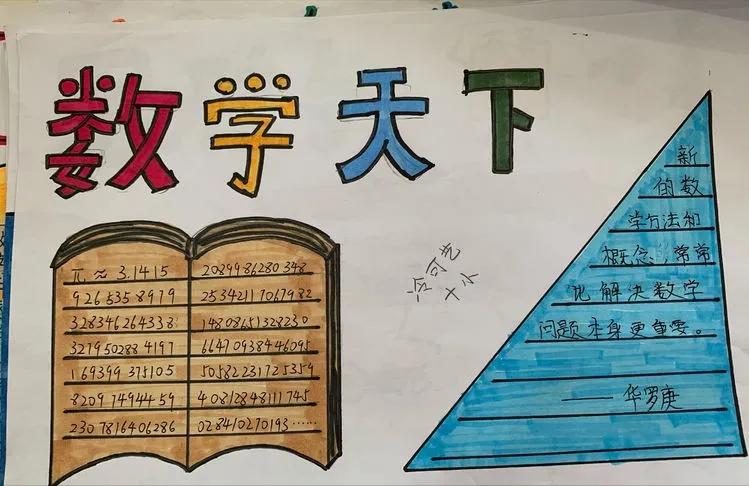 数学天下
π ≈ 3.1415
926535 8979
328346264338
327950288 4197
169399 375105
8209 7494459
230 7816406286
20899 86280 348
2534211 7067982
1480865 1328230
66470938446095
5058223172 5359
4 0812848111 745
028410270193……
新
的数
学方法和
概念，常常
比解决数学
问题本身更重要。
—— 华罗庚